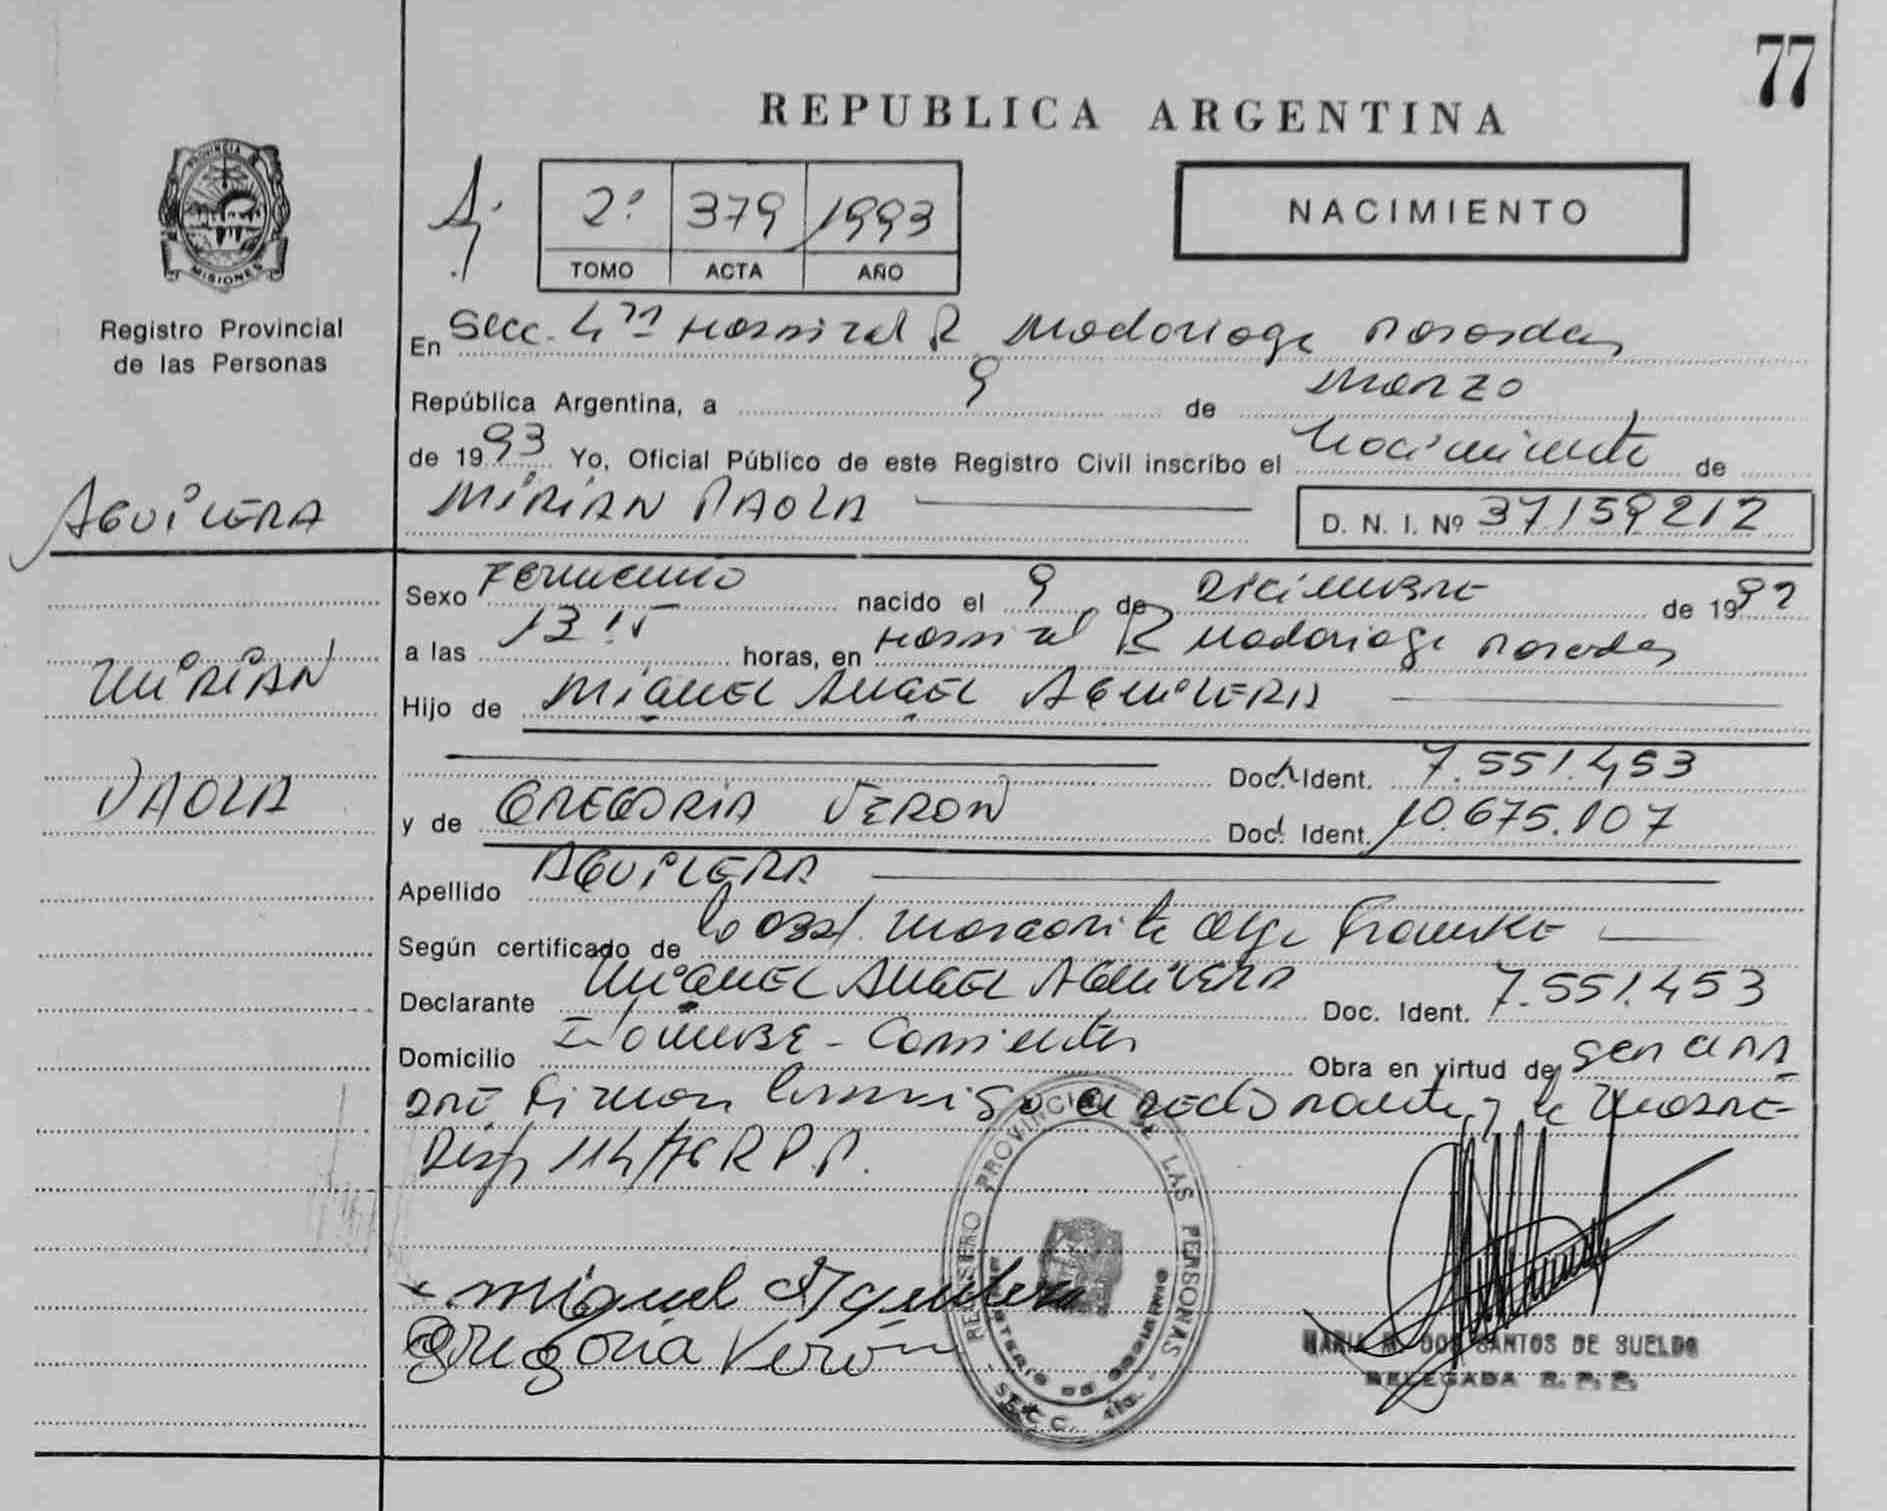 77
REPUBLICA ARGENTINA
PROVINCIA DE
MISIONES
Registro Provincial
de las Personas
2º 379 1993
TOMO ACTA AÑO
NACIMIENTO
En Secc. 4ta Hospital R Madariaga Posadas
República Argentina, a 9 de Marzo
de 1993 Yo, Oficial Público de este Registro Civil inscribo el Nacimiento de
AGUILERA
MIRIAN PAOLA
D. N. I. Nº 37.159212
Sexo Femenino nacido el 9 de Diciembre de 1992
MIRIAN
a las 13:15 horas, en Hospital R Madariaga Posadas
Hijo de MIGUEL ANGEL AGUILERA
PAOLA
Doc. Ident. 7.551.453
y de GREGORIA VERON Doc. Ident. 10.675.107
Apellido AGUILERA
Según certificado de la Obst. Margarita Olga
Declarante MIGUEL ANGEL AGUILERA Doc. Ident. 7.551.453
Domicilio Corrientes Obra en virtud de ser
Firman Conmigo el declarante y la Madre
Disp 114/76 R.P.P.
Miguel Aguilera
Gregoria Verón
REGISTRO PROVINCIAL DE LAS PERSONAS
MINISTERIO DE GOBIERNO
SECC. 4ta.
MARIA M. DOS SANTOS DE SUELDO
DELEGADA R. P. P.